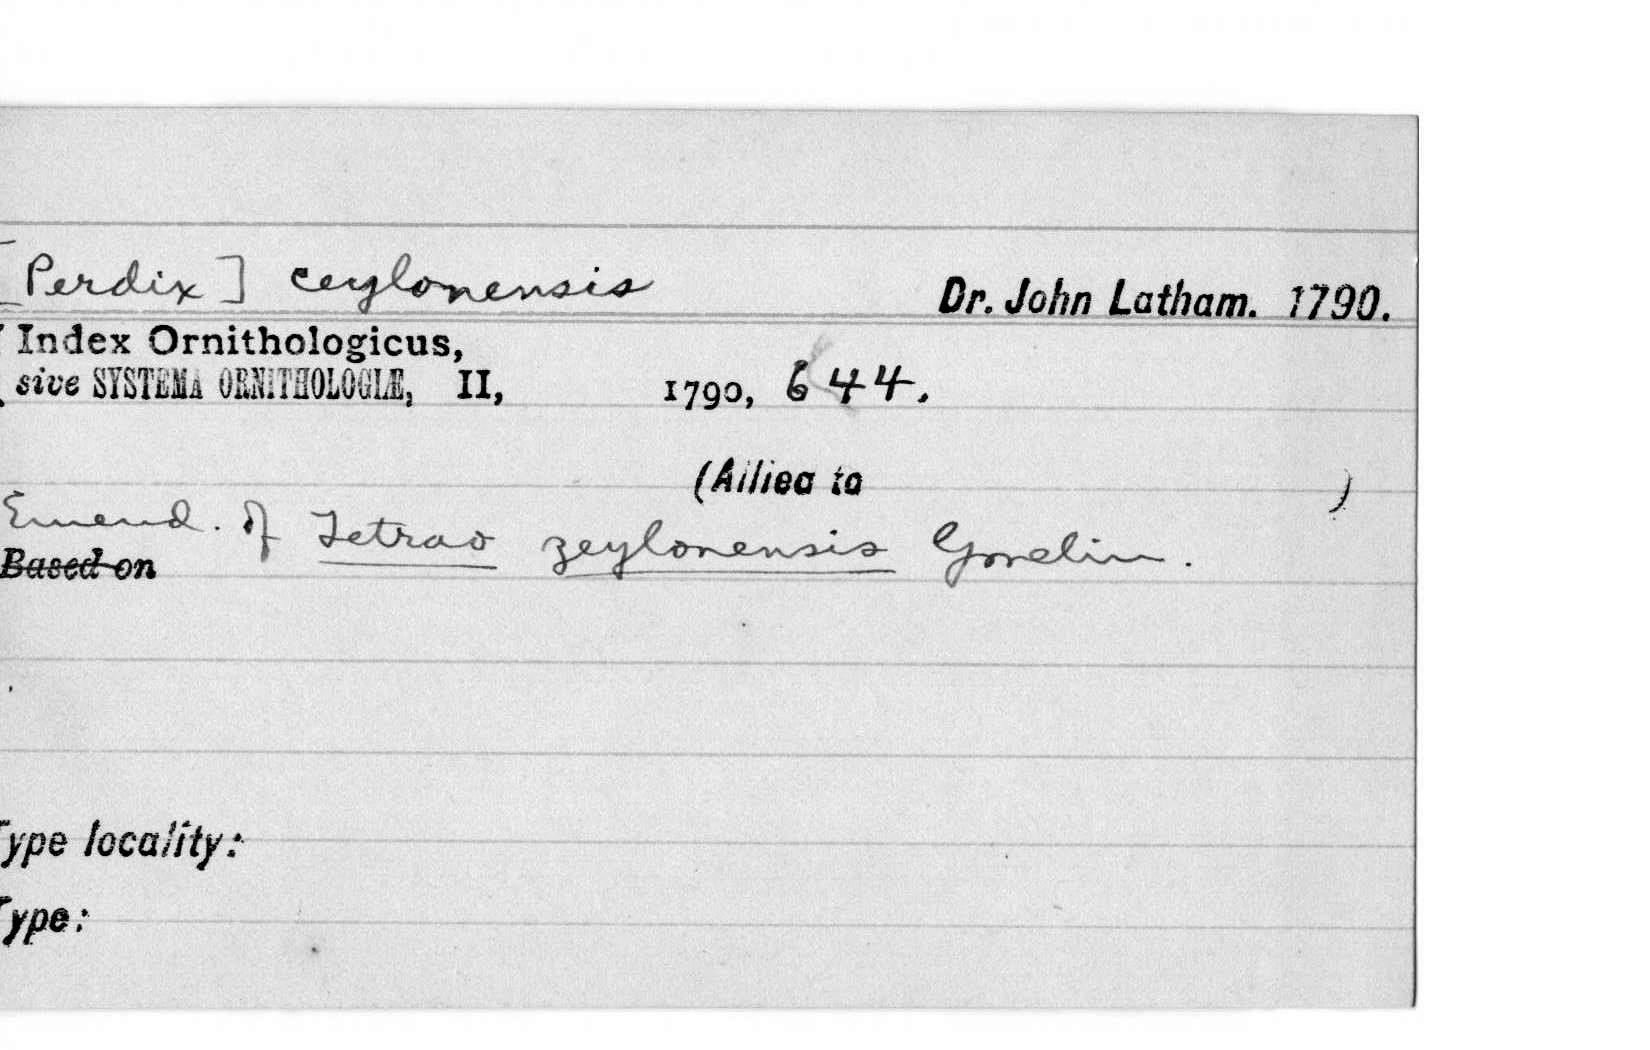 [Perdix] ceylonensis Dr. John Latham. 1790.
Index Ornithologicus,
sive SYSTEMA ORNITHOLOGIÆ, II, 1790, 644.
(Allied to )
Emend. of Tetrao zeylonensis Gmelin.
Based on
Type locality:
Type: